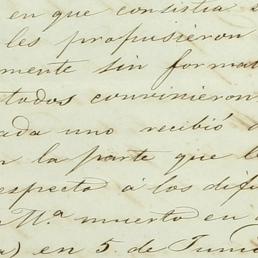 en que consistia
les propusieron
mente sin forma
todos convinieron
ada uno recibió
la parte que l
especto á los dif
Mª. muerto en
) en 5. de Junio